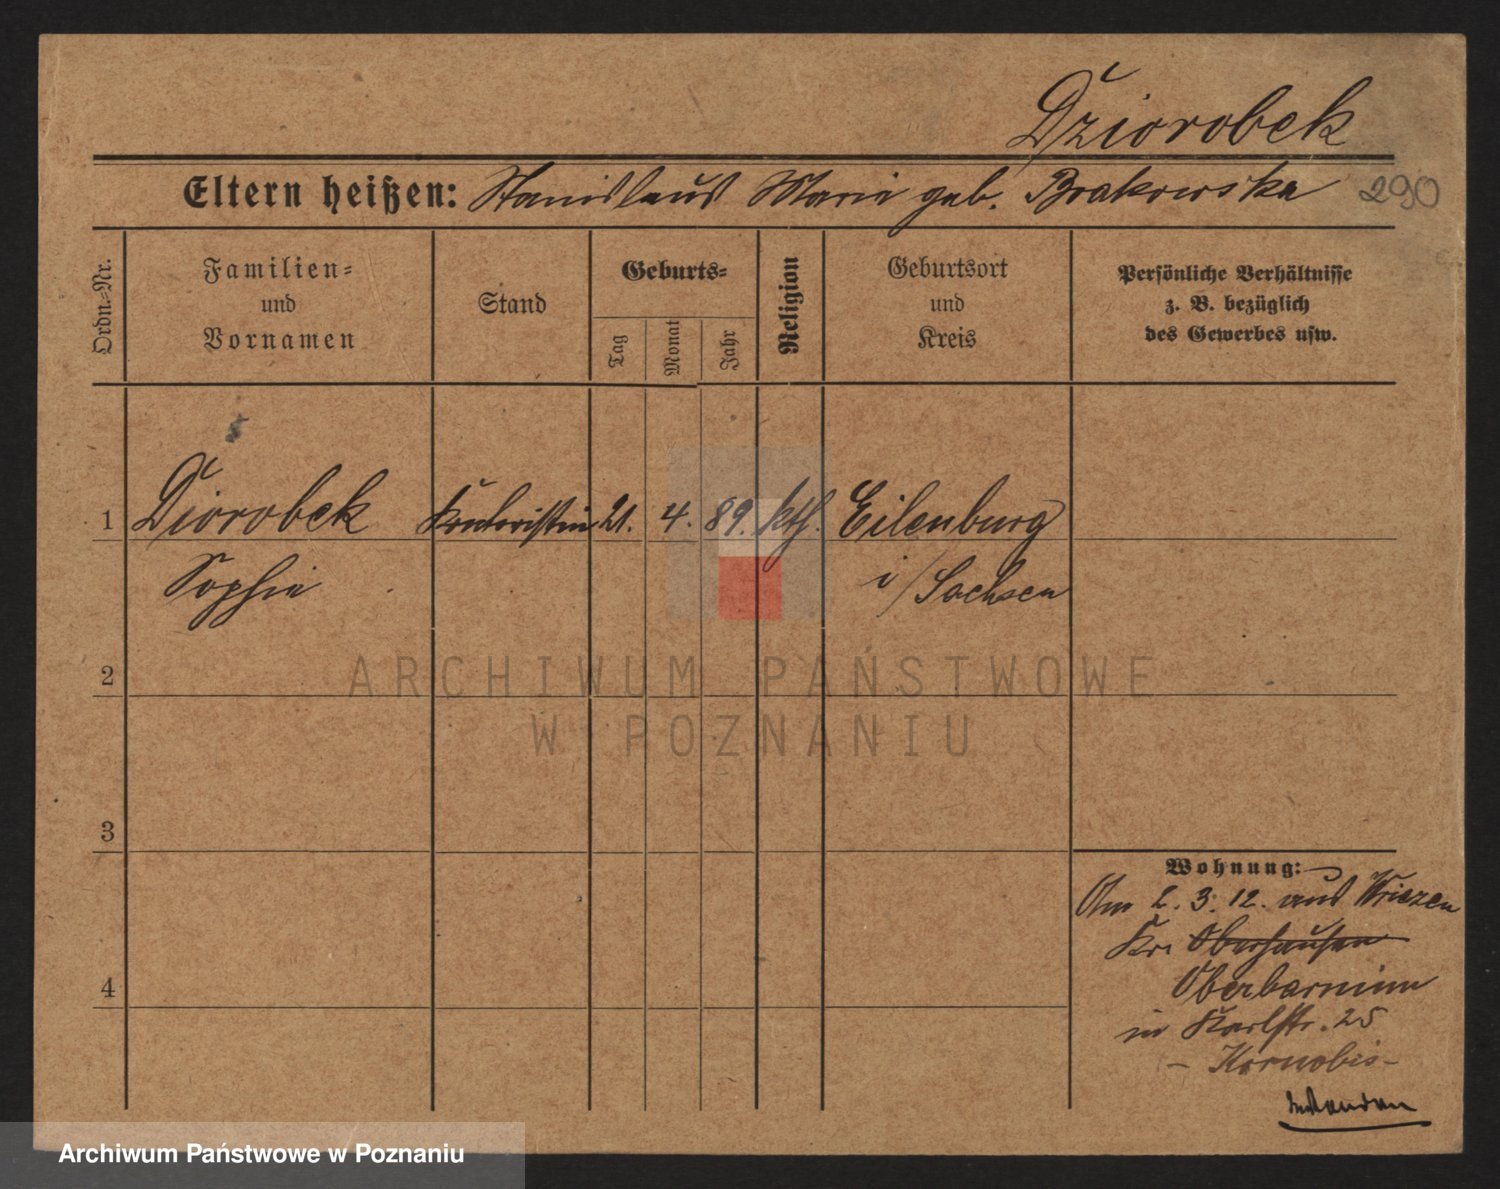 Dziorobek
Eltern heißen: Stanislaus Marie geb. Brakowska 290
Ordn.-Nr.
Familien-
und
Vornamen
Stand
Geburts-
Tag
Monat
Jahr
Religion
Geburtsort
und
Kreis
Persönliche Verhältnisse
z. B. bezüglich
des Gewerbes usw.
1 Diorobek Kontoristin 21. 4. 89. kth. Eilenburg
Sophie i/Sachsen
2
3
4
Wohnung:
Am 2. 3. 12. aus Wriezen
Kr. Oberhausen
Oberbarnim
in Karlstr. 25
- Kornobis -
ARCHIWUM PAŃSTWOWE
W POZNANIU
Archiwum Państwowe w Poznaniu